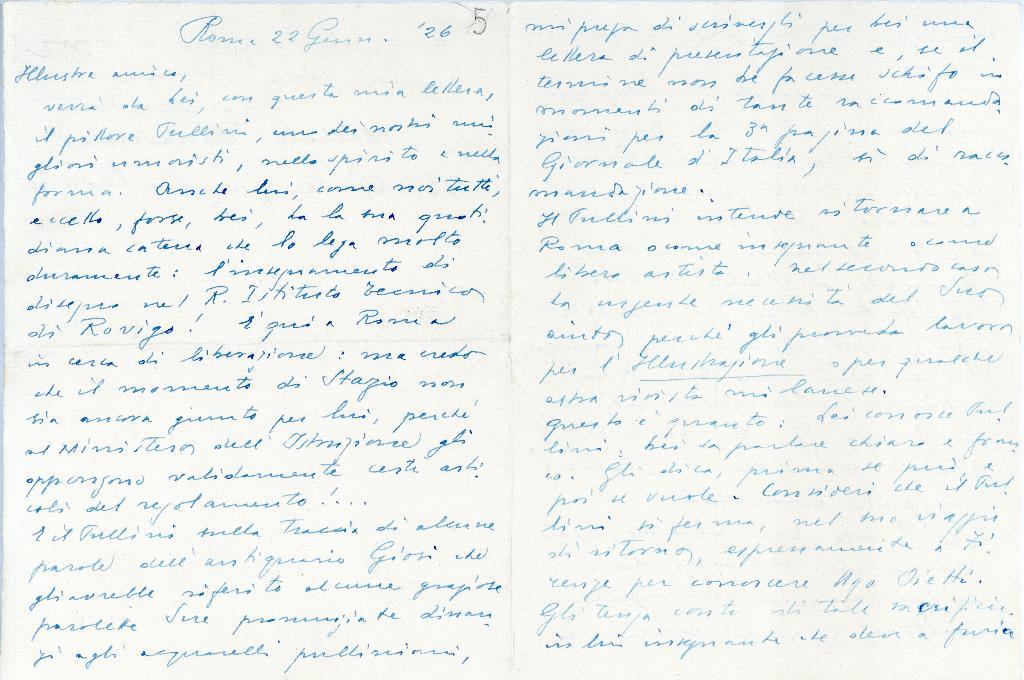 Roma 22 Genn. '26
5
Illustre amico,
verrà da Lei, con questa mia lettera,
il pittore Pullini, uno dei nostri mi-
gliori umoristi, nello spirito e nella
forma. Anche lui, come noi tutti,
eccetto, forse, Lei, ha la sua quoti-
diana catena che lo lega molto
duramente: l'insegnamento di
disegno nel R. Istituto Tecnico
di Rovigo! È qui a Roma
in cerca di liberazione: ma credo
che il momento di Stazio non
sia ancora giunto per lui, perché
al Ministero dell'Istruzione gli
oppongono validamente certi arti-
coli del regolamento!...
E il Pullini sulla traccia di alcune
parole dell'antiquario Giosi che
gli avrebbe riferito alcune graziose
parolette Sue pronunziate dinan-
zi agli acquarelli pulliniani,
mi prega di scrivergli per Lei una
lettera di presentazione e, se il
termine non Le facesse schifo in
momenti di tante raccomanda-
zioni per la 3a pagina del
Giornale d'Italia, sì di racco-
mandazione.
Il Pullini intende ritornare a
Roma o come insegnante o come
libero artista. Nel secondo caso
ha urgente necessità del Suo
aiuto perché gli provveda lavoro
per l'Illustrazione o per qualche
altra rivista milanese.
Questo è quanto. Lei conosce Pul-
lini: Lei sa parlare chiaro e fran-
co. Gli dica, prima se può, e
poi se vuole. Consideri che il Pul-
lini si ferma, nel suo viaggio
di ritorno, espressamente a Fi-
renze per conoscere Ugo Ojetti.
Gli tenga conto di tale sacrificio
in lui insegnante che deve a furia